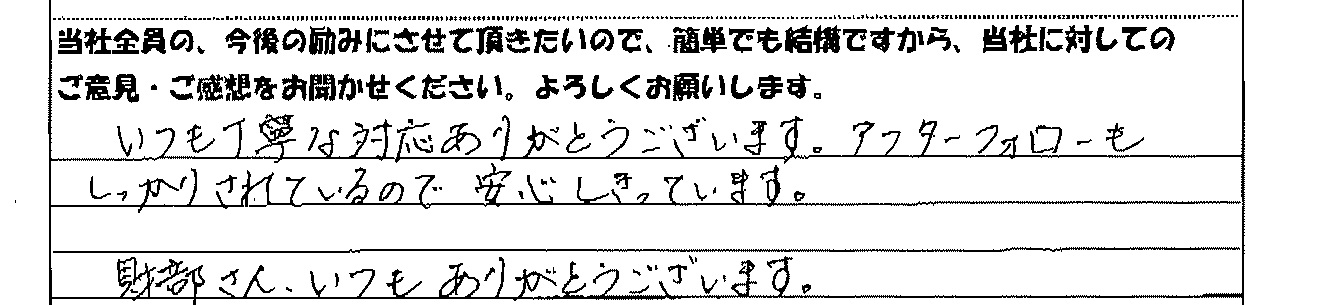 当社全員の、今後の励みにさせて頂きたいので、簡単でも結構ですから、当社に対しての
ご意見・ご感想をお聞かせください。よろしくお願いします。
いつも丁寧な対応ありがとうございます。アフターフォローも
しっかりされているので安心しきっています。
財部さん、いつもありがとうございます。